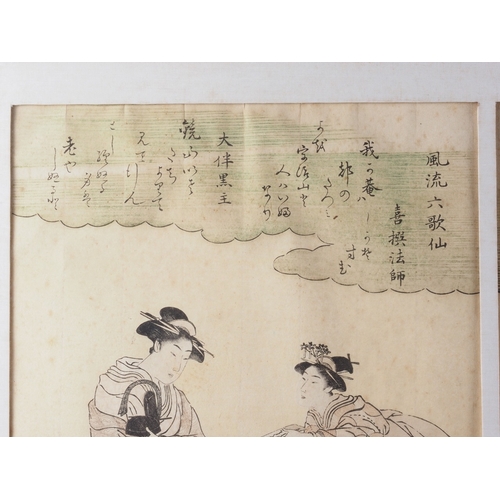 風流六歌仙
喜撰法師
我が庵ハ
都の
たつミ
しかそ
すむ
よを
宇治山と
人ハいふ
なり
大伴黒主
鏡山いさ
たち
よりて
見てゆかん
としへぬる
身は
老や
しぬると